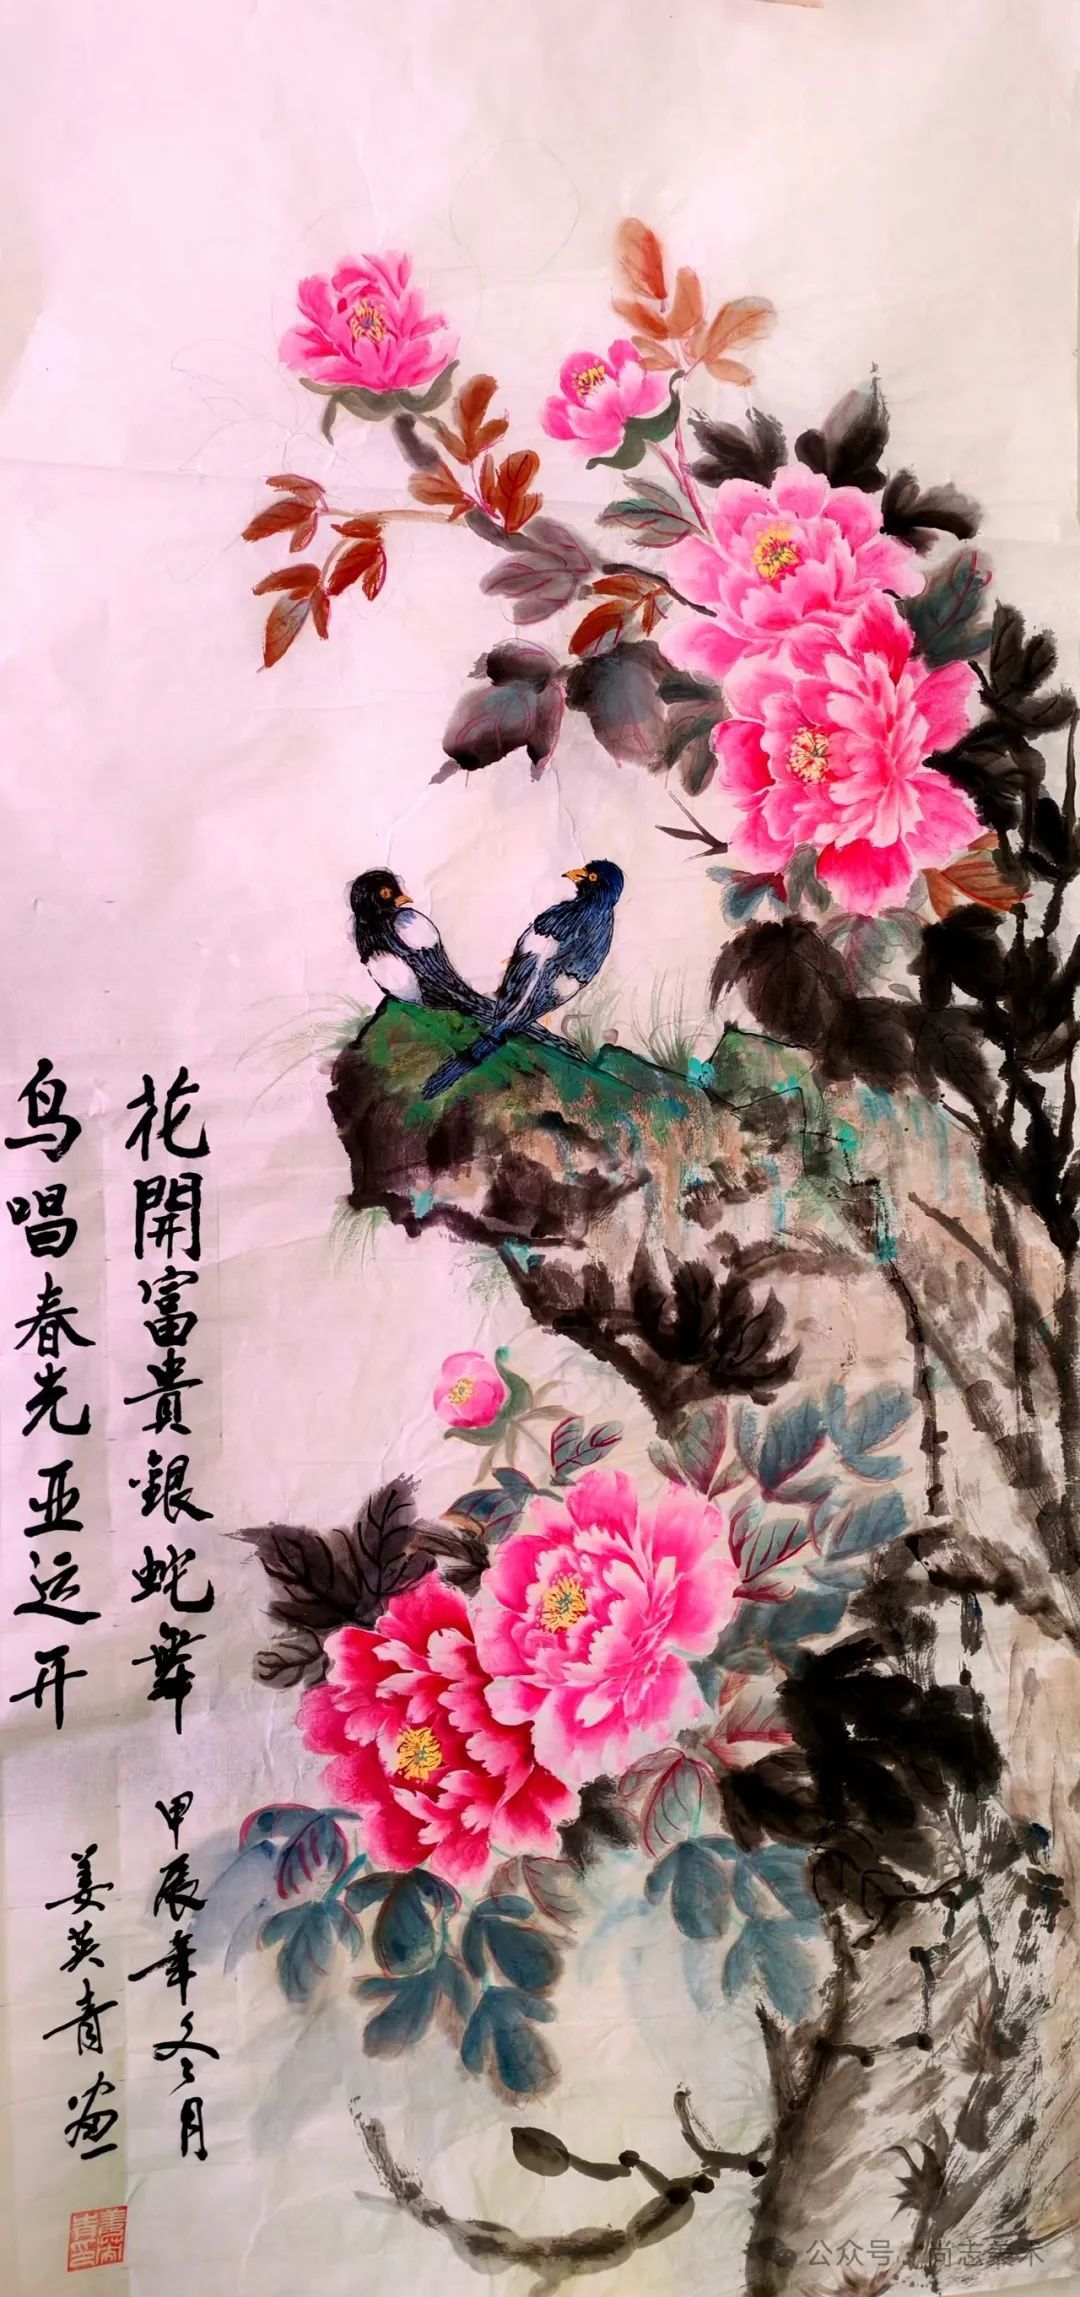 花開富貴銀蛇舞
鸟唱春光亚运开
甲辰年冬月
姜英青画
公众号